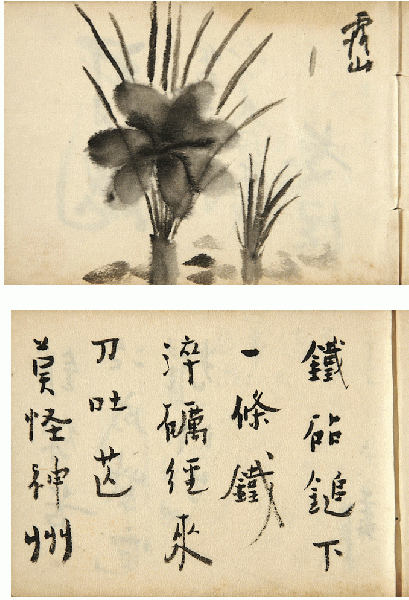 山
鐵砧鎚下
一條鐵
淬礪經來
刀吐芒
莫怪神州